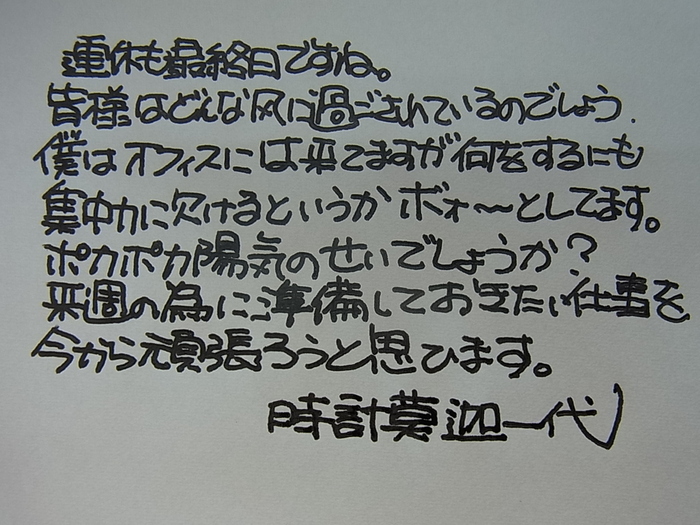 連休も最終日ですね。
皆様はどんな風に過ごされているのでしょう.
僕はオフィスには来てますが何をするにも
集中力に欠けるというかボォ〜としてます。
ポカポカ陽気のせいでしょうか？
来週の為に準備しておきたい仕事を
今から頑張ろうと思ひます。
時計莫迦一代